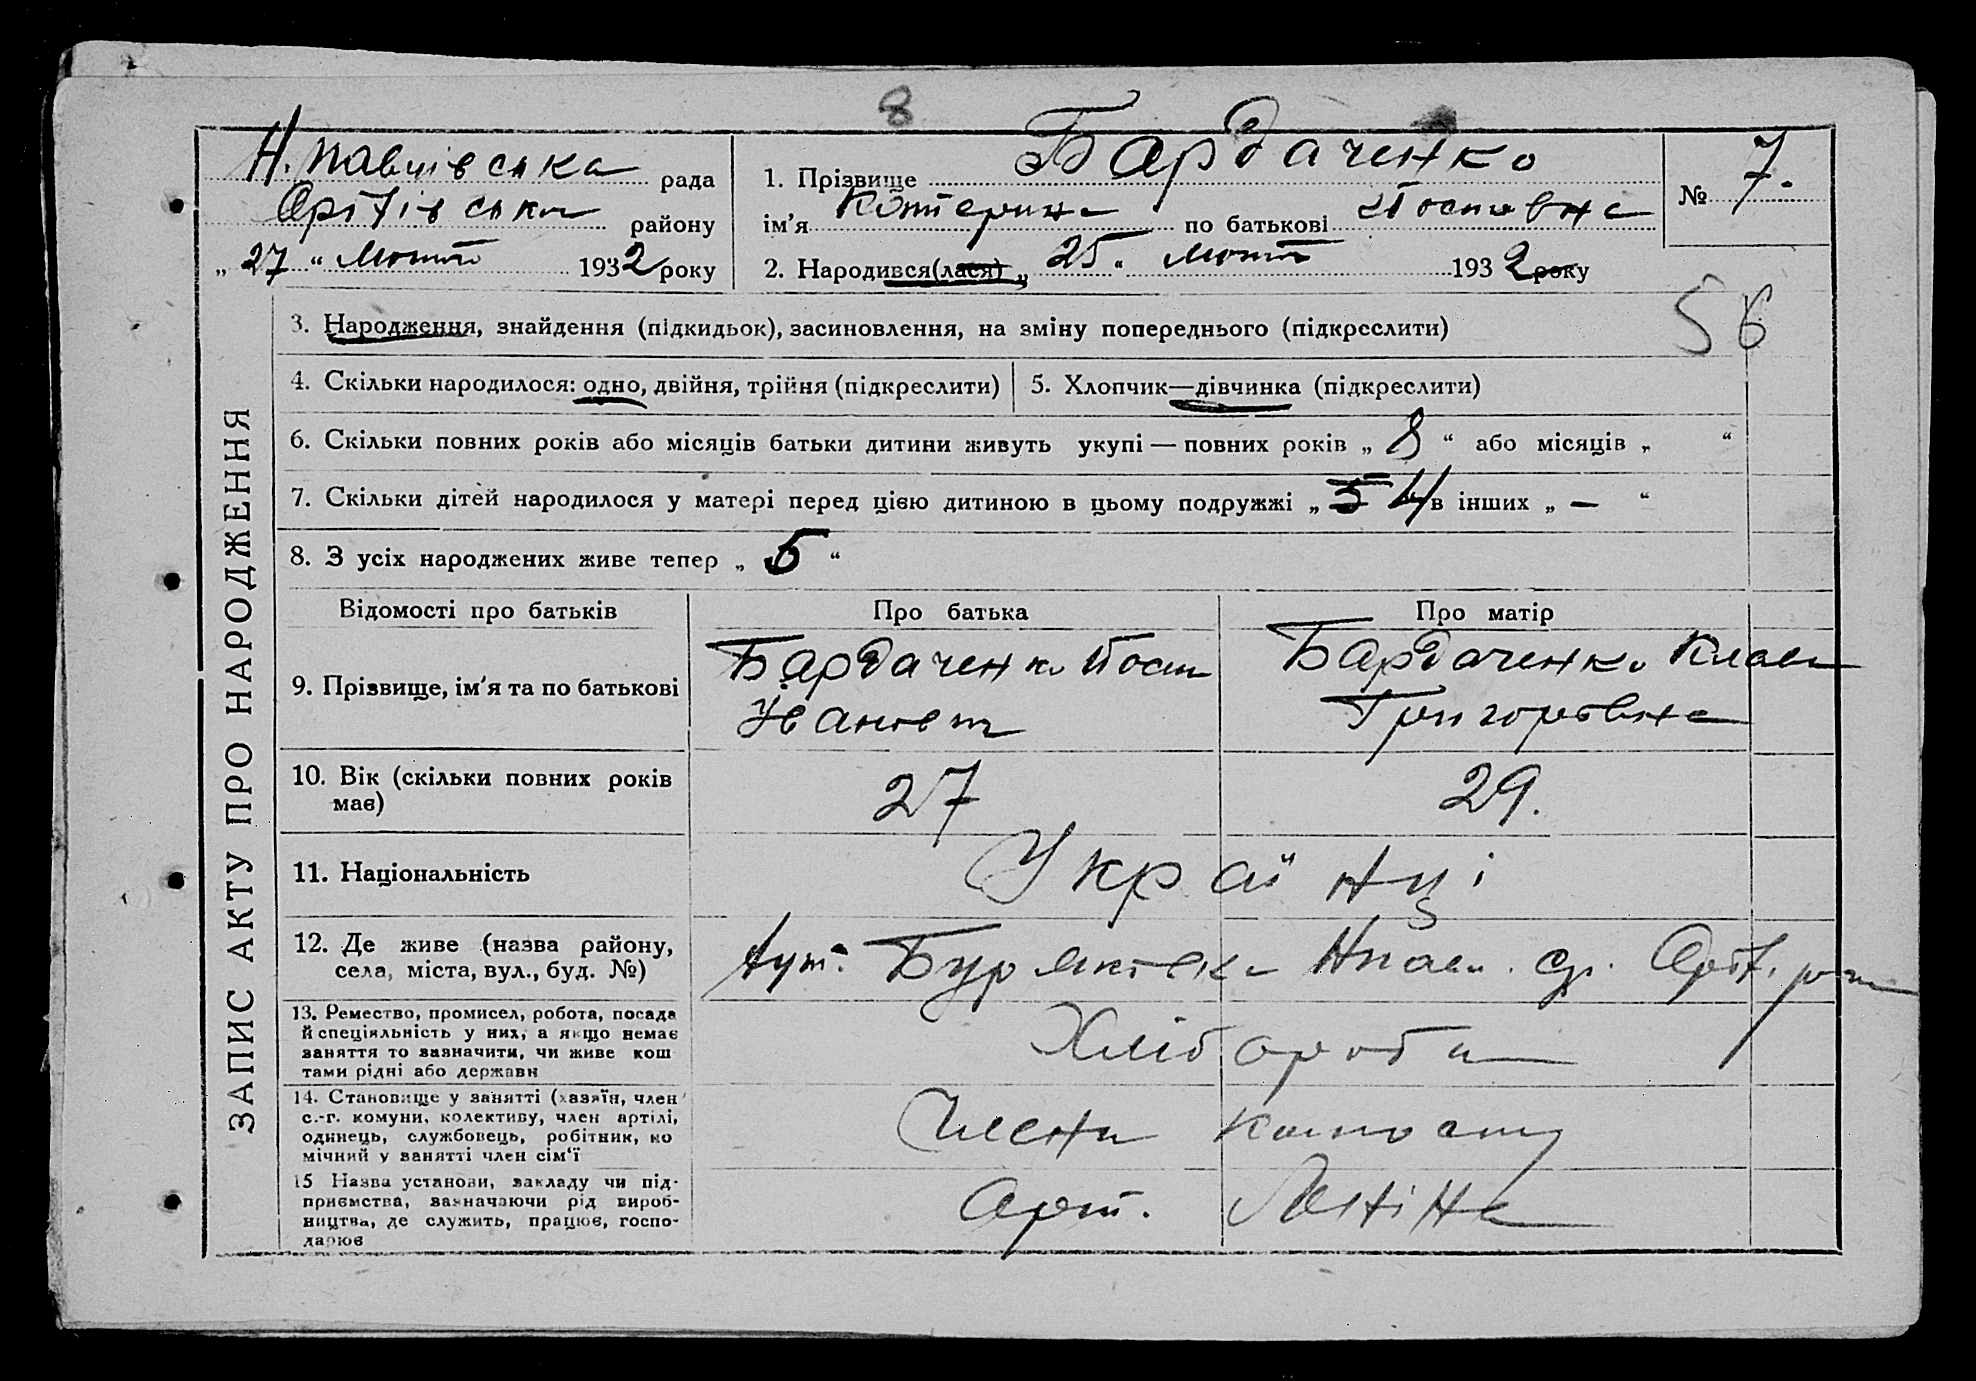 8
Н. Павлівська рада
Оріхівськ району
„ 27 “ Лютого 1932 року
1. Прізвище Бардаченко
ім'я Катерина по батькові
2. Народився(лася) „ 25 “ Лютого 1932 року
№ 7.
56
ЗАПИС АКТУ ПРО НАРОДЖЕННЯ
3. Народження, знайдення (підкидьок), засиновлення, на зміну попереднього (підкреслити)
4. Скільки народилося: одно, двійня, трійня (підкреслити)
5. Хлопчик—дівчинка (підкреслити)
6. Скільки повних років або місяців батьки дитини живуть укупі — повних років „ 8 “ або місяців „ “
7. Скільки дітей народилося у матері перед цією дитиною в цьому подружжі „ 5 4 в інших „ — “
8. З усіх народжених живе тепер „ 5 “
Відомості про батьків
Про батька
Про матір
9. Прізвище, ім'я та по батькові
Бардаченко
Іванович
Бардаченко
Григоровна
10. Вік (скільки повних років
має)
27
29.
11. Національність
Українці
12. Де живе (назва району,
села, міста, вул., буд. №)
Хут. Буряковка Нпавл. ср. Оріх. р-н
13. Ремество, промисел, робота, посада
й спеціяльність у них, а якщо немає
заняття то зазначити, чи живе кош
тами рідні або держави
Хлібороби
14. Становище у занятті (хазяїн, член
с.-г. комуни, колективу, член артілі,
одинець, службовець, робітник, по
мічний у занятті член сім'ї
Члени колгоспу
15 Назва установи, закладу чи під-
приємства, зазначаючи рід вироб-
ництва, де служить, працює, госпо-
дарює
Арт. Леніна